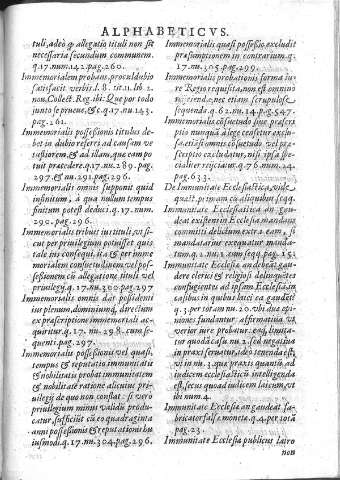 ALPHABETICVS.
tuli, adeò q̃ allegatio tituli non sit
necessaria secundum communem.
q.17.num.142.pag.260.
Immemorialem probans, procul dubio
satisfacit verbis l.8. tit.11. lib.2.
non. Collect. Reg. ibi: Que por todo
junto se prueue, & c. q.17.nu.143.
pag.261.
Immemorialis possessionis titulus de-
bet in dubio referri ad causam ve
& ad illam, que eam po
tuit præcedere. q.17.nu.289. pag.
297. & nu.291. pag.296.
Immemorialis omnis supponit quid
infinitum, à qua nullum tempus
finitum potest deduci. q.17.num.
290. pag.296.
Immemorialis tribuit ius tituli, vt si-
cut per priuilegium potuisset quis
tale ius consequi, ita & per imme
morialem consuetudinem, vel pos-
sessionem eiusdem tituli, vel
priuilegij. q.17. nu.300. pag.297
Immemorialis omnis dat possidenti
ius plenum, dominium, directum
ex præscriptione immemoriali ac-
quiritur. q.17. nu.298. cum se-
quenti. pag.297.
Immemorialis possessionis vel quasi,
tempus & reputatio immunitatis
& nobilitatis probat immunitatem
& nobilitatis ratione alicuius pri-
uilegij de quo non constat: si vero
priuilegium minus validum produ-
catur, sufficiunt cũ eo quadraginta
anni possessionis & reputationis hu
iusmodi. q.17. nu.304. pag.296.
Immemorialis quasi possessio, excludit
præsumptionem in contrarium. q.
17. nu.305. pag.299.
Immemorialis probationis forma iu-
re Regio requisita, non est omnino
nec etiam scrupulose
sequenda. q.62. nu.14. pag.547.
Immemorialis cõsuetudo siue præscri
ptio nunquã à lege censetur exclu-
sa, etiã si omnis cõsuetudo, vel præ-
scriptio excludatur, nisi ipsa spe-
cialiter reijciatur. q.76. num.24.
pag.633.
De Immunitate Ecclesiastica, vide
quæst. primam cũ aliquibus seqq.
Immunitate Ecclesiastica an gau-
deat existens in Ecclesia in Immunitate
committi delictum extra eam, si
mandatarius exequatur manda-
tum. q.1. num.2. cum seqq. pag.15.
Immunitate Ecclesiæ an debeat gau-
dere clerici & religiosi delinquẽtes
confugientes ad ipsam Ecclesiã, in
casibus in quibus laici ea gaudẽt
q.3. per totam nu.20. vbi duæ opi-
niones fundantur, affirmatiua, vt
verior iure probatur: eaq; limita-
tur quodã casu nu.2. sed negatiua
in praxi seruatur, ideo tenenda est,
vt in nu.3. quæ praxis quantũ ad
iudicem ecclesiasticũ intelligenda
est, secus quoad iudicem laicum, vt
ibi num.4.
Immunitate Ecclesiæ an gaudeat fa-
bricator falsæ monetæ. q.4. per totã
pag.23.
Immunitate Ecclesiæ publicus latro
non